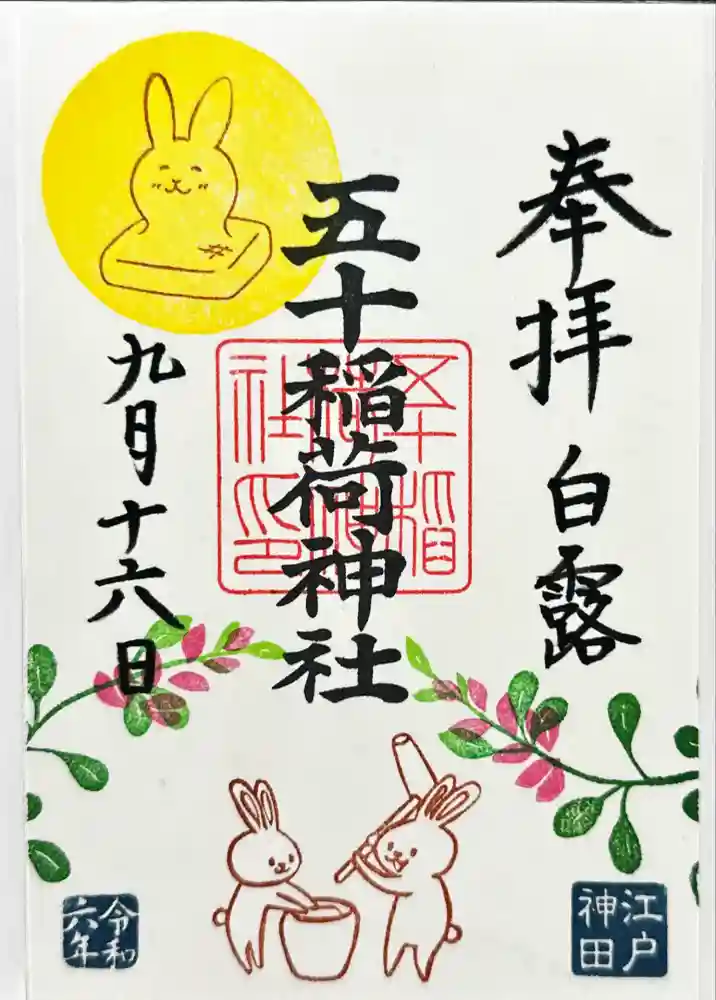 奉拝
白露
五十稲荷神社
五十稲
荷神
社印
九月十六日
江戸
神田
令和
六年